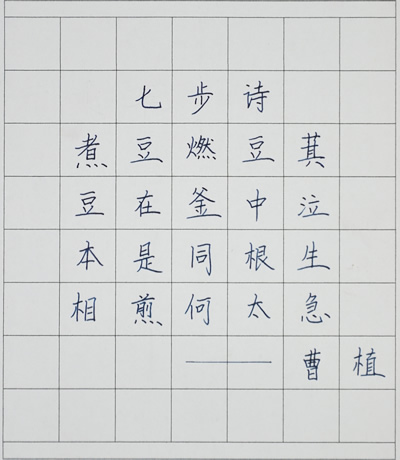 七步诗
煮豆燃豆萁
豆在釜中泣
本是同根生
相煎何太急
——曹植